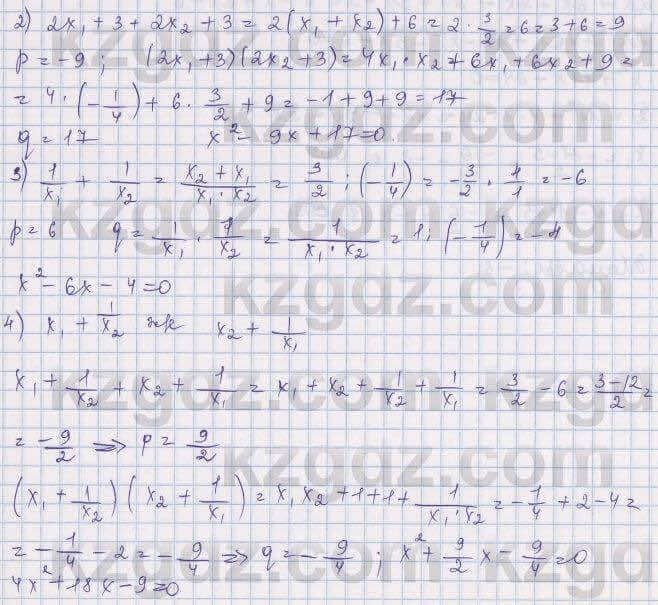 2) 2x₁ + 3 + 2x₂ + 3 = 2(x₁ + x₂) + 6 = 2 · 3/2 = 6 = 3 + 6 = 9
p = -9; (2x₁ + 3)(2x₂ + 3) = 4x₁ · x₂ + 6x₁ + 6x₂ + 9 =
= 4 · (-1/4) + 6 · 3/2 + 9 = -1 + 9 + 9 = 17
q = 17 x² - 9x + 17 = 0.
3) 1/x₁ + 1/x₂ = (x₂ + x₁)/(x₁ · x₂) = 3/2 : (-1/4) = -3/2 · 4/1 = -6
p = 6 q = 1/x₁ · 1/x₂ = 1/(x₁ · x₂) = 1 : (-1/4) = -4
x² - 6x - 4 = 0
4) x₁ + 1/x₂ жк x₂ + 1/x₁
x₁ + 1/x₂ + x₂ + 1/x₁ = x₁ + x₂ + 1/x₂ + 1/x₁ = 3/2 - 6 = (3-12)/2 =
= -9/2 ⇒ p = 9/2
(x₁ + 1/x₂)(x₂ + 1/x₁) = x₁x₂ + 1 + 1 + 1/(x₁ · x₂) = -1/4 + 2 - 4 =
= -1/4 - 2 = -9/4 ⇒ q = -9/4; x² + 9/2x - 9/4 = 0
4x² + 18x - 9 = 0
kzgdz.com